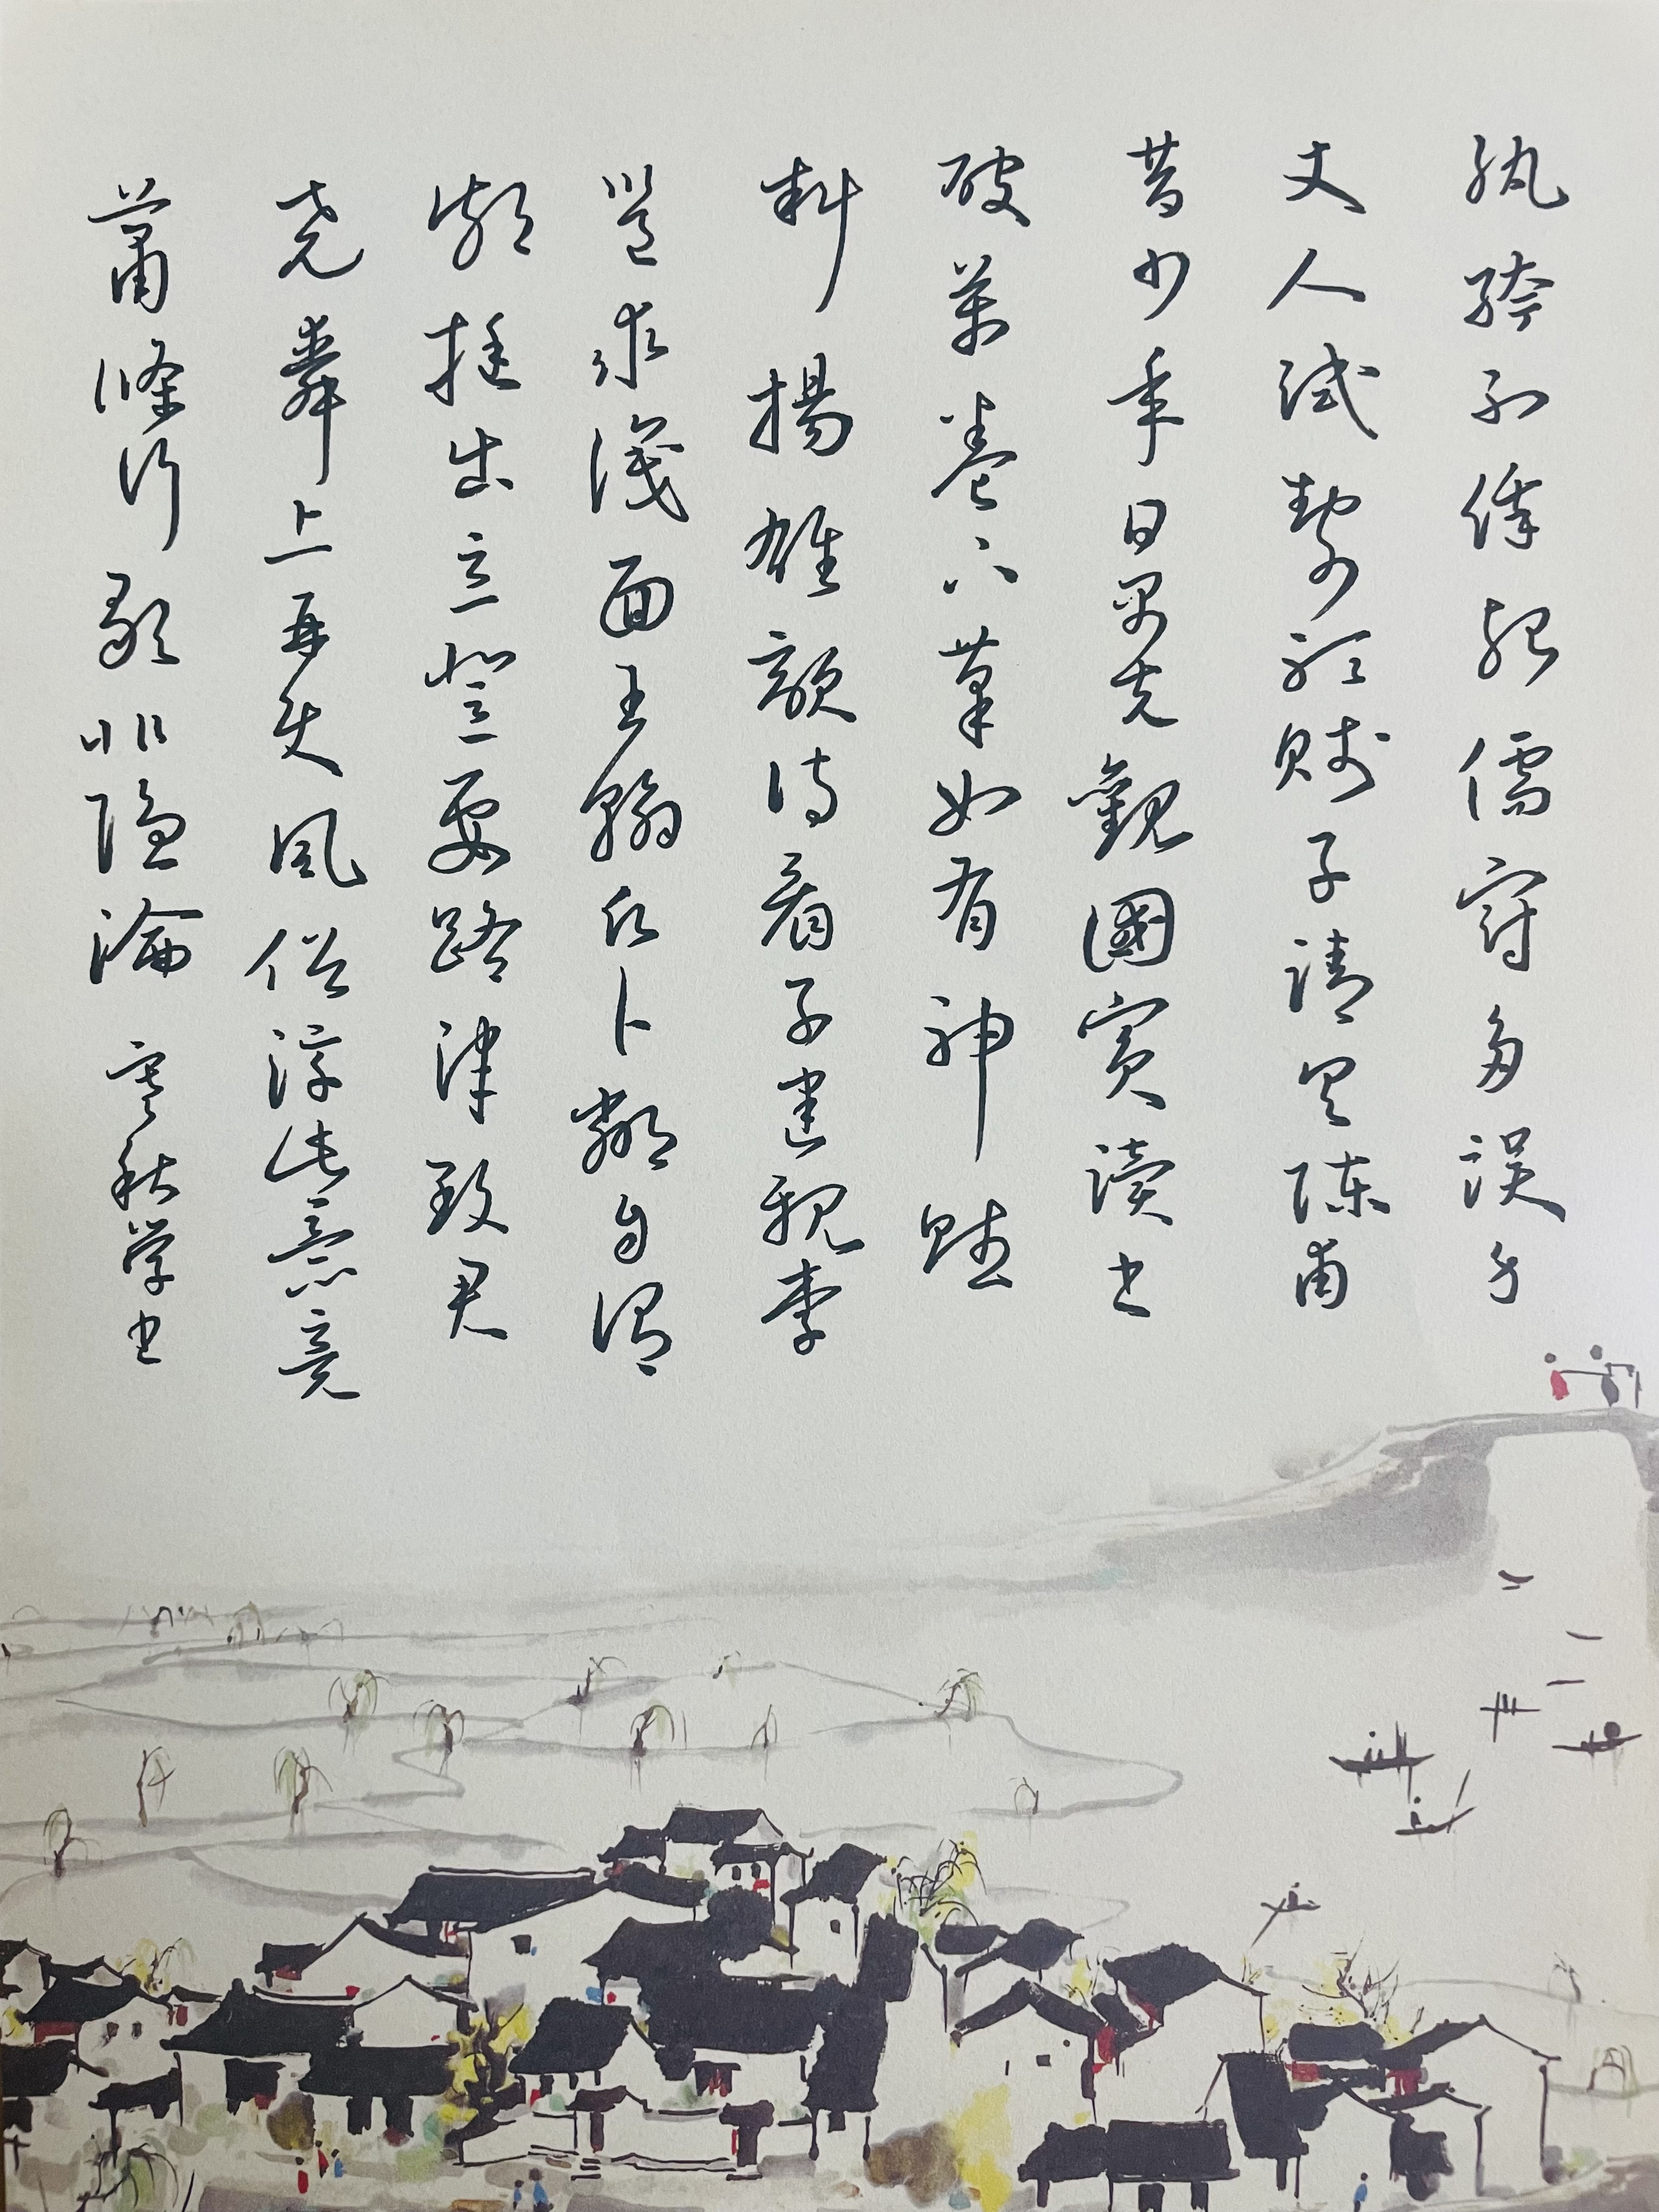 紈絝不餓死儒冠多誤身
丈人試靜聽賤子請具陳甫
昔少年日早充觀國賓讀书
破萬卷下筆如有神賦
料揚雄敵詩看子建親李
邕求識面王翰願卜鄰自謂
頗挺出立登要路津致君
堯舜上再使風俗淳此意竟
蕭條行歌非隱淪 秋学书